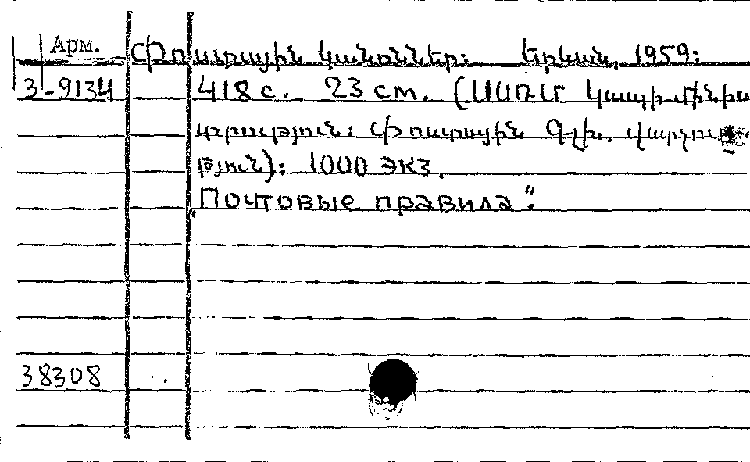 Арм.
Փոստային կանոններ: Երևան, 1959:
3-9134 418 с. 23 cm. (ՍՍՌՄ Կապի մինիս
տրություն: Փոստային Գլխ. վարչու
թյուն): 1000 экз.
"Почтовые правила".
38308